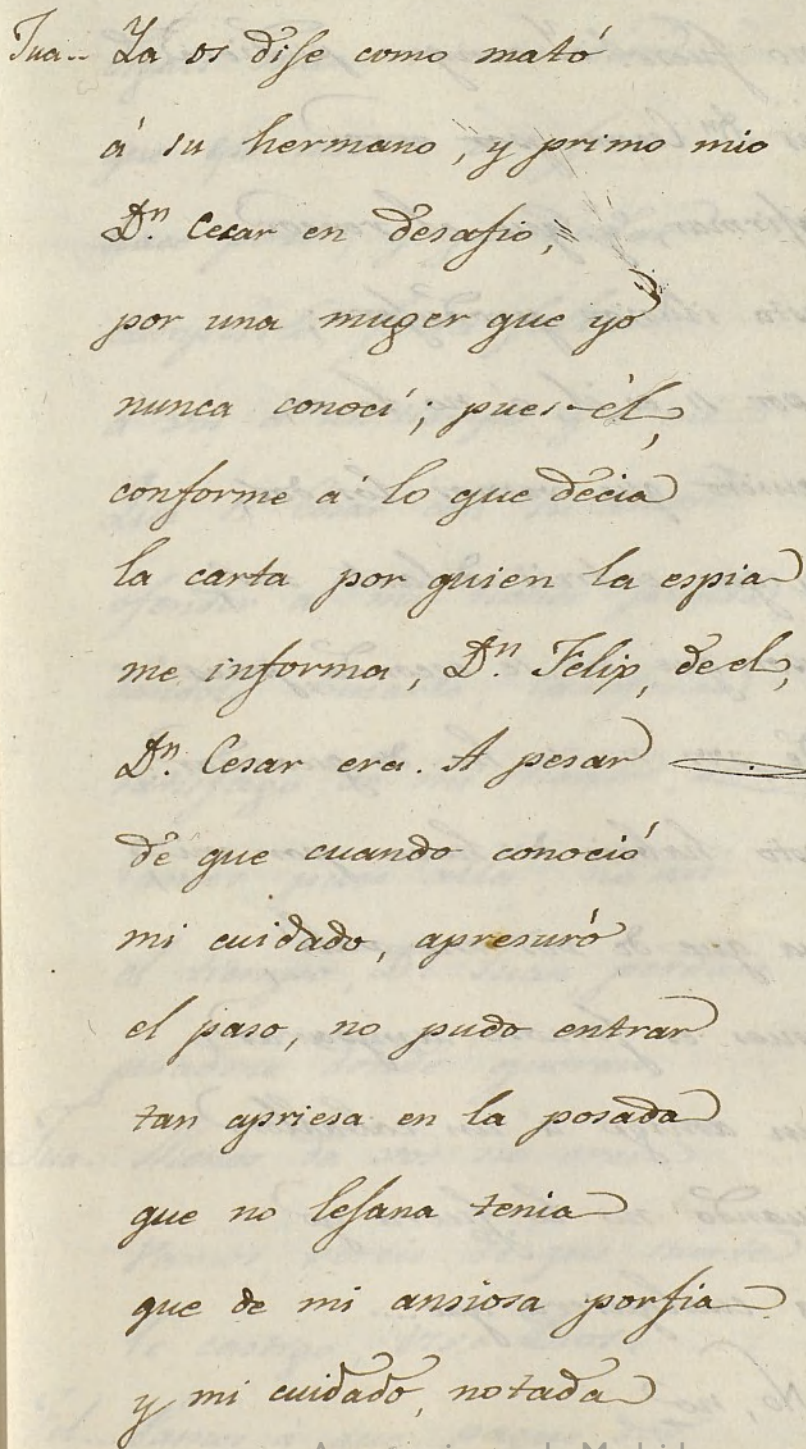 Jua.. Ya os dise como mató
á su hermano, y primo mio
Dn. Cesar en desafio,
por una muger que yo
nunca conocí; pues él,
conforme á lo que decia
la carta por quien la espia
me informa, Dn. Felix, de el,
Dn. Cesar era. A pesar
de que cuando conoció
mi cuidado, apresuró
el paso, no pudo entrar
tan apriesa en la posada
que no tenia
que de mi ansiosa porfia
y mi cuidado, notada